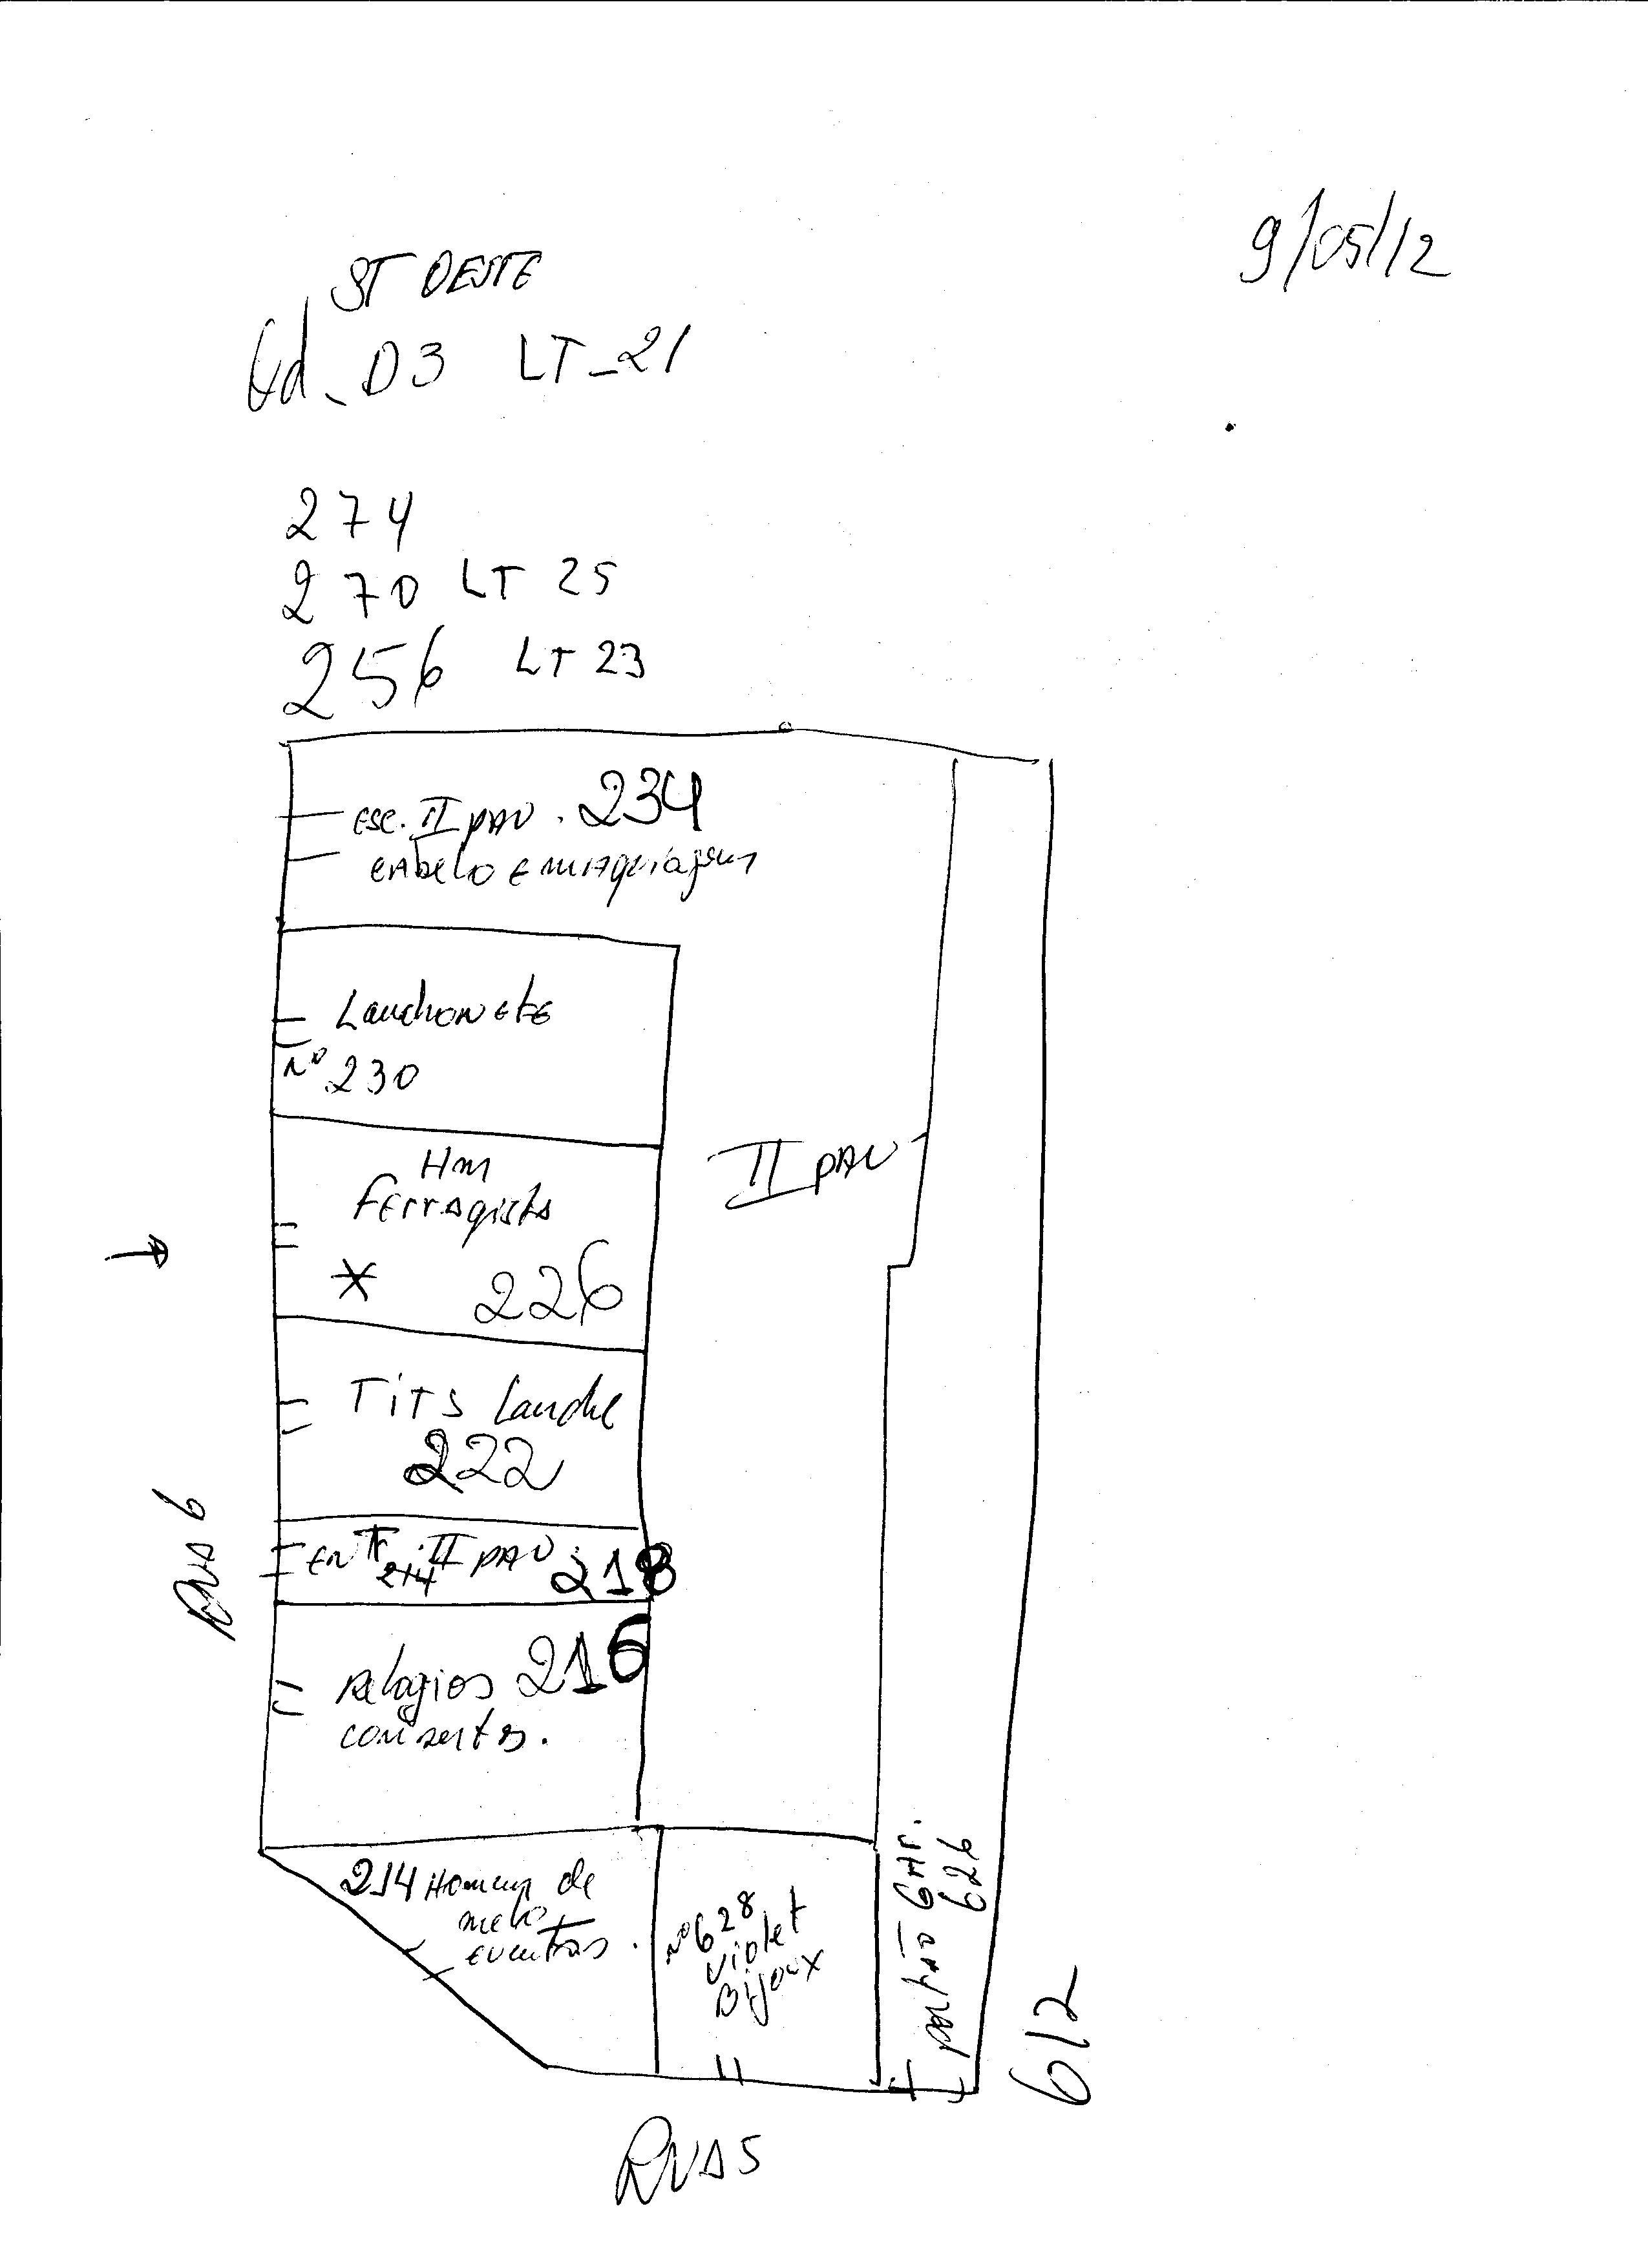 9/05/12
ST OESTE
Qd_ D3 LT_21
274
270 LT 25
256 LT 23
ESC. II PAV. 234
CABELO E MAQUIAGEM
Lanchonete
Nº 230
HM
Ferragista
* 226
II PAV
Tits Lanche
222
RUA 6
ENTR. II PAV. 218
214
Relogios 216
consertos.
214 Homem de
melo
eventos.
Nº 628
Violet
Bijoux
portão GAR.
626
612
RUA 5